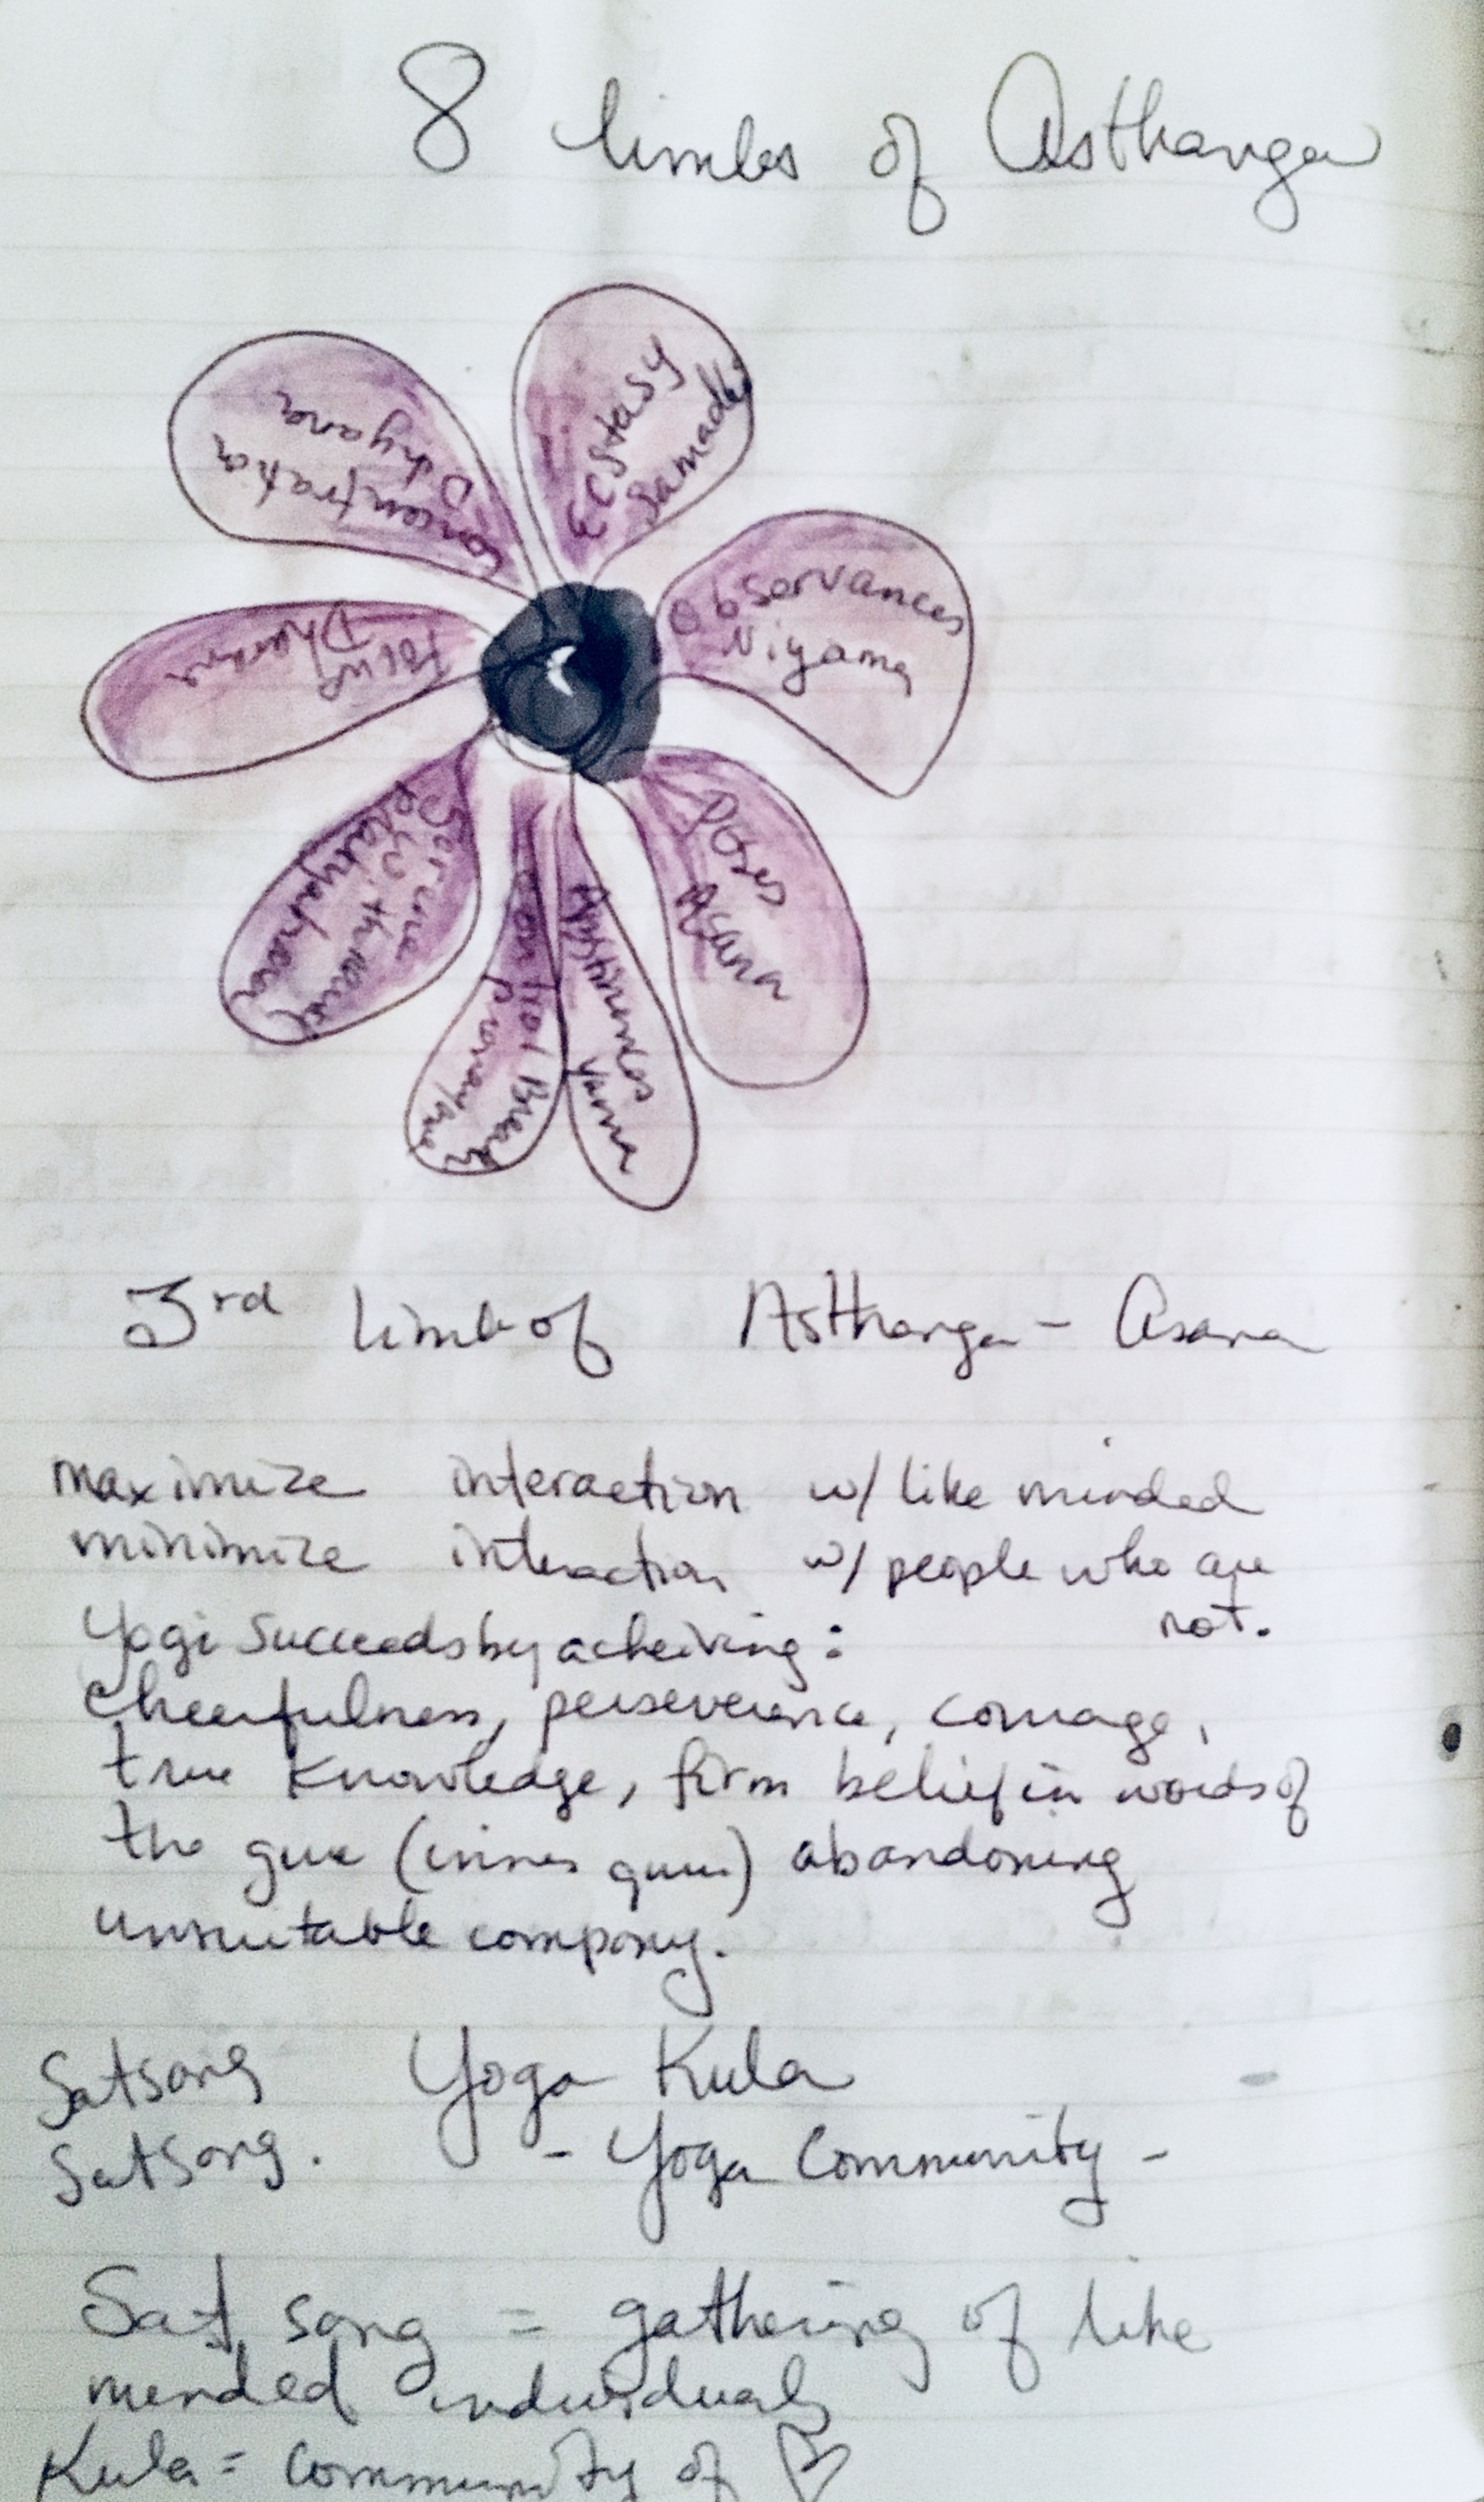 8 limbs of Asthanga
Ecstasy
Samadhi
Observances
Niyama
Poses
Asana
Abstinences
Yama
Control Breath
Sense
withdrawl
Pratyahara
Focus
Dharana
Concentration
Dhyana
3rd limb of Asthanga - Asana
maximize interaction w/ like minded
minimize interaction w/ people who are
not.
Yogi succeeds by acheiving:
Cheerfulness, perseverence, courage,
true knowledge, firm belief in words of
the guru (inner guru) abandoning
unsuitable company.
Satsang Yoga Kula
Satsang. - Yoga Community -
Sat sang = gathering of like
minded individuals
Kula = Community of ♡